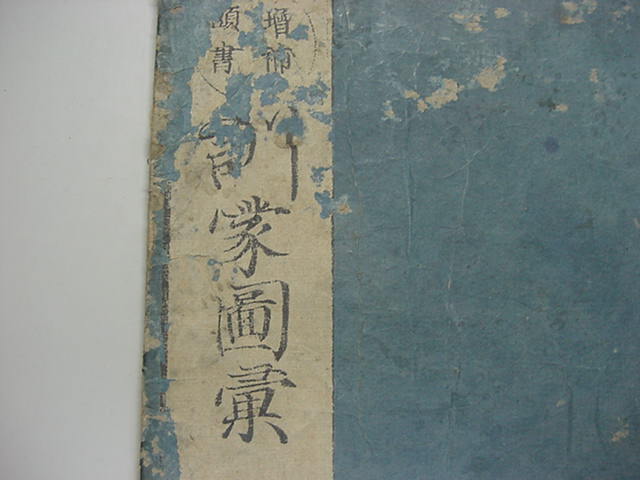 增補
頭書
訓蒙圖彙